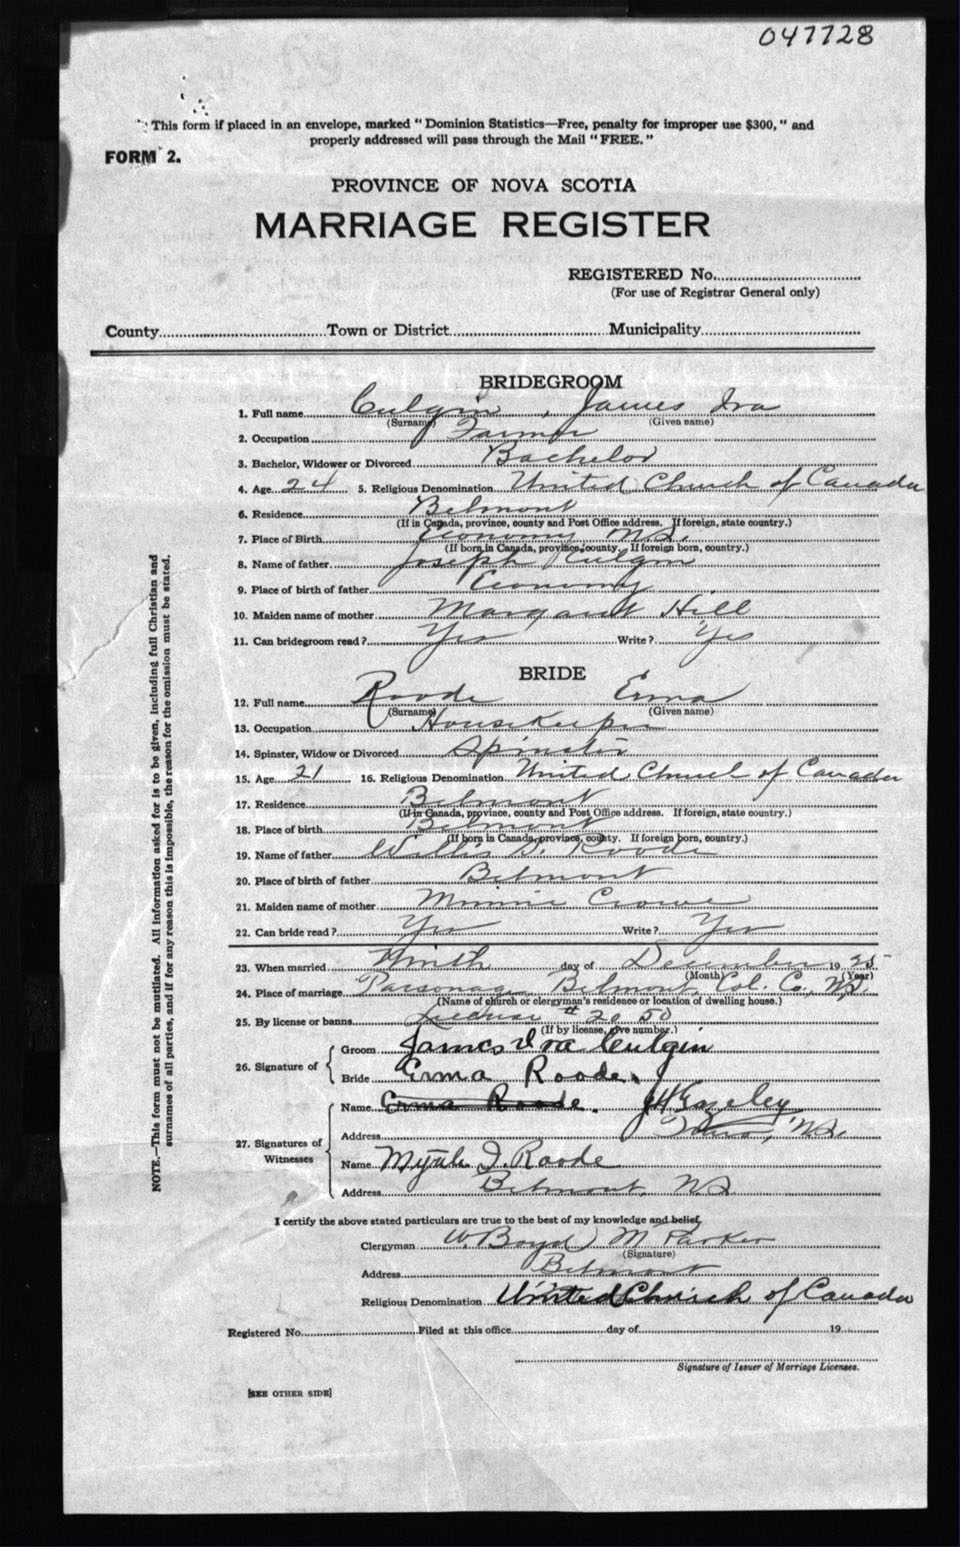 047728
This form if placed in an envelope, marked "Dominion Statistics—Free, penalty for improper use $300," and
properly addressed will pass through the Mail "FREE."
FORM 2.
PROVINCE OF NOVA SCOTIA
MARRIAGE REGISTER
REGISTERED No.
(For use of Registrar General only)
County Town or District Municipality
BRIDEGROOM
1. Full name Culgin, James Ira
(Surname) (Given name)
2. Occupation Farmer
3. Bachelor, Widower or Divorced Bachelor
4. Age 24 5. Religious Denomination United Church of Canada
6. Residence Belmont
(If in Canada, province, county and Post Office address. If foreign, state country.)
7. Place of Birth Economy N.S.
(If born in Canada, province, county. If foreign born, country.)
8. Name of father Joseph Culgin
9. Place of birth of father Economy
10. Maiden name of mother Margaret Hill
11. Can bridegroom read? Yes Write? Yes
BRIDE
12. Full name Roode Erma
(Surname) (Given name)
13. Occupation Housekeeper
14. Spinster, Widow or Divorced Spinster
15. Age 21 16. Religious Denomination United Church of Canada
17. Residence Belmont
(If in Canada, province, county and Post Office address. If foreign, state country.)
18. Place of birth Belmont
(If born in Canada, province, county. If foreign born, country.)
19. Name of father Willis Roode
20. Place of birth of father Belmont
21. Maiden name of mother Minnie Crowe
22. Can bride read? Yes Write? Yes
23. When married Ninth day of December 1925
(Month) (Year)
24. Place of marriage Parsonage Belmont, Col. Co., N.S.
(Name of church or clergyman's residence or location of dwelling house.)
25. By license or banns License # 2050
(If by license, give number.)
26. Signature of Groom James Ira Culgin
Bride Erma Roode.
27. Signatures of Witnesses Name Erma Roode.
Address Truro, N.S.
Name Myrtle I. Roode
Address Belmont, N.S.
I certify the above stated particulars are true to the best of my knowledge and belief.
Clergyman W. Boyd McParker
(Signature)
Address Belmont
Religious Denomination United Church of Canada
Registered No. Filed at this office day of 19
Signature of Issuer of Marriage Licenses.
[SEE OTHER SIDE]
NOTE.—This form must not be mutilated. All information asked for is to be given, including full Christian and
surnames of all parties, and if for any reason this is impossible, the reason for the omission must be stated.